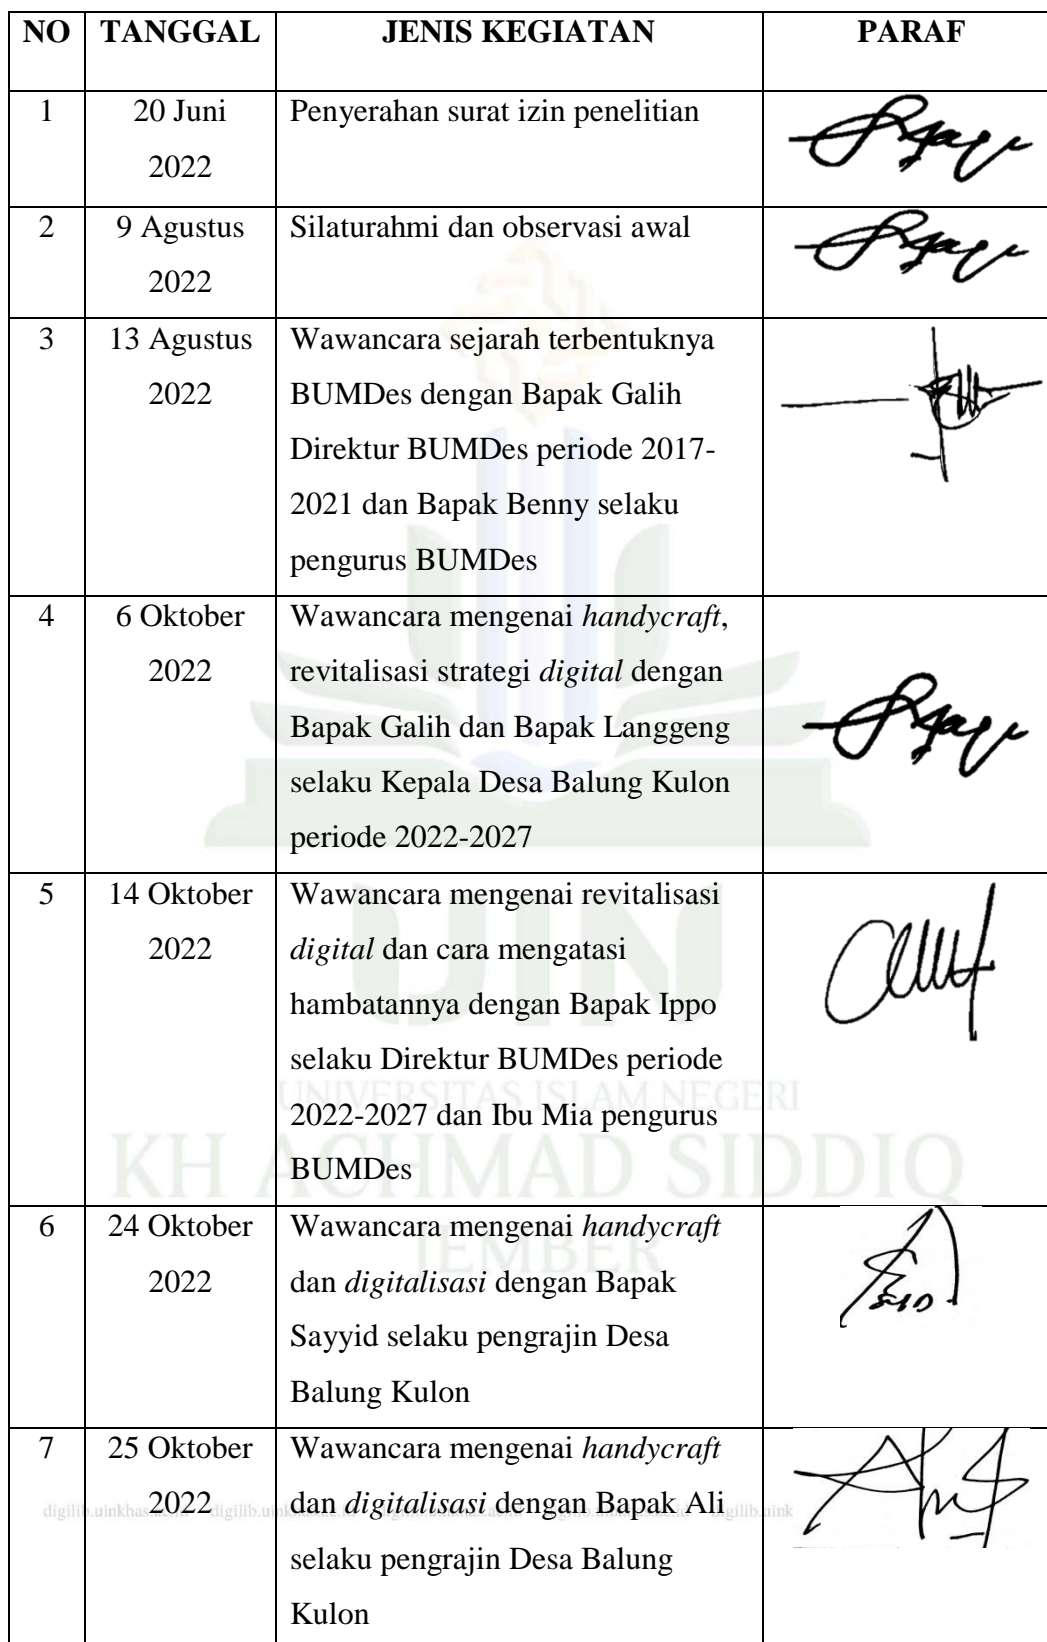 NO TANGGAL JENIS KEGIATAN PARAF
1 20 Juni Penyerahan surat izin penelitian
2022
2 9 Agustus Silaturahmi dan observasi awal
2022
3 13 Agustus Wawancara sejarah terbentuknya
2022 BUMDes dengan Bapak Galih
Direktur BUMDes periode 2017-
2021 dan Bapak Benny selaku
pengurus BUMDes
4 6 Oktober Wawancara mengenai handycraft,
2022 revitalisasi strategi digital dengan
Bapak Galih dan Bapak Langgeng
selaku Kepala Desa Balung Kulon
periode 2022-2027
5 14 Oktober Wawancara mengenai revitalisasi
2022 digital dan cara mengatasi
hambatannya dengan Bapak Ippo
selaku Direktur BUMDes periode
2022-2027 dan Ibu Mia pengurus
BUMDes
6 24 Oktober Wawancara mengenai handycraft
2022 dan digitalisasi dengan Bapak
Sayyid selaku pengrajin Desa
Balung Kulon
7 25 Oktober Wawancara mengenai handycraft
2022 dan digitalisasi dengan Bapak Ali
selaku pengrajin Desa Balung
Kulon
UIN
UNIVERSITAS ISLAM NEGERI
KH ACHMAD SIDDIQ
JEMBER